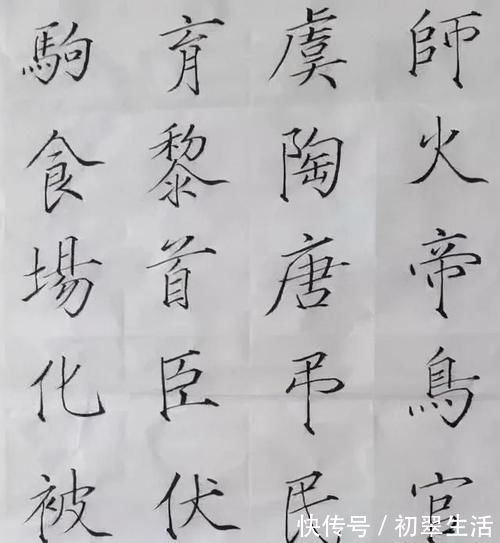 師火帝鳥官
虞陶唐弔民
育黎首臣伏
駒食場化被
快传号/初翠生活